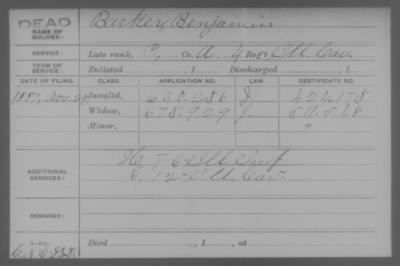 DEAD
NAME OF SOLDIER:
Barker, Benjamin
SERVICE:
Late rank, P, Co. A, 4 Reg't Ill. Cav.
TERM OF SERVICE:
Enlisted , 1 Discharged , 1
DATE OF FILING. CLASS. APPLICATION NO. LAW. CERTIFICATE NO.
1887, Nov. 29 Invalid, 630.286 J. 424.178
Widow, 678.929 J. 511.548
Minor, "
ADDITIONAL SERVICES:
H. 76 Ill. Inf
C. 12 Ill. Cav.
REMARKS:
Died , 1 , at